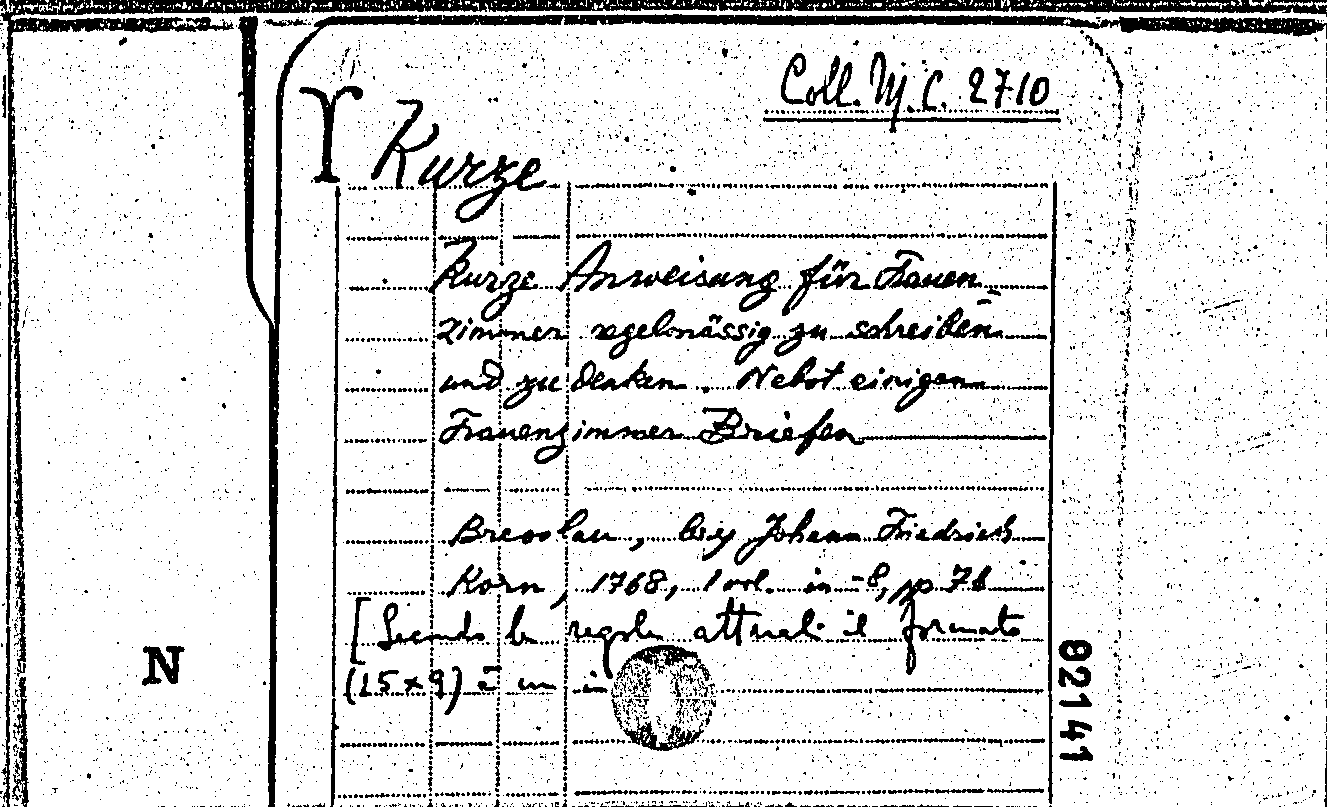 Coll. M. C. 2710
Kurze
Kurze Anweisung für Frauen-
zimmer regelmässig zu schreiben
und zu denken. Nebst einigen
Frauenzimmer Briefen
Breslau, bey Johann Friedrich
Korn, 1768, 1 vol. in -8, pp 76
[Secondo le regole attuali il formato
(15 x 9) è un in
N
02141